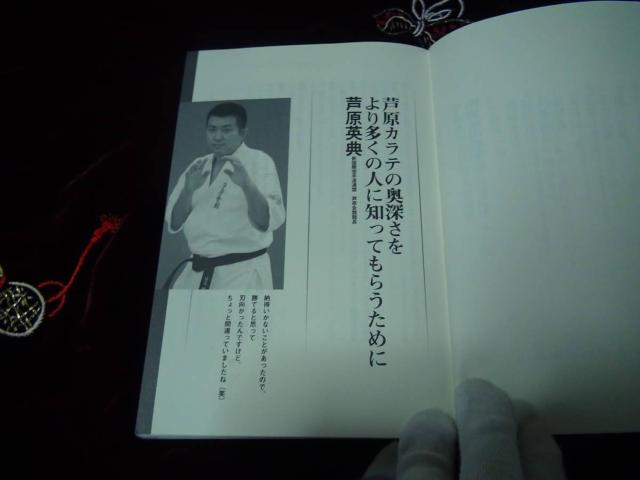 芦原カラテの奥深さを
より多くの人に知ってもらうために
芦原英典
新国際空手道連盟 芦原会館館長
納得いかないことがあったので、
勝てると思って
刃向かったんですけど、
ちょっと間違っていましたね（笑）